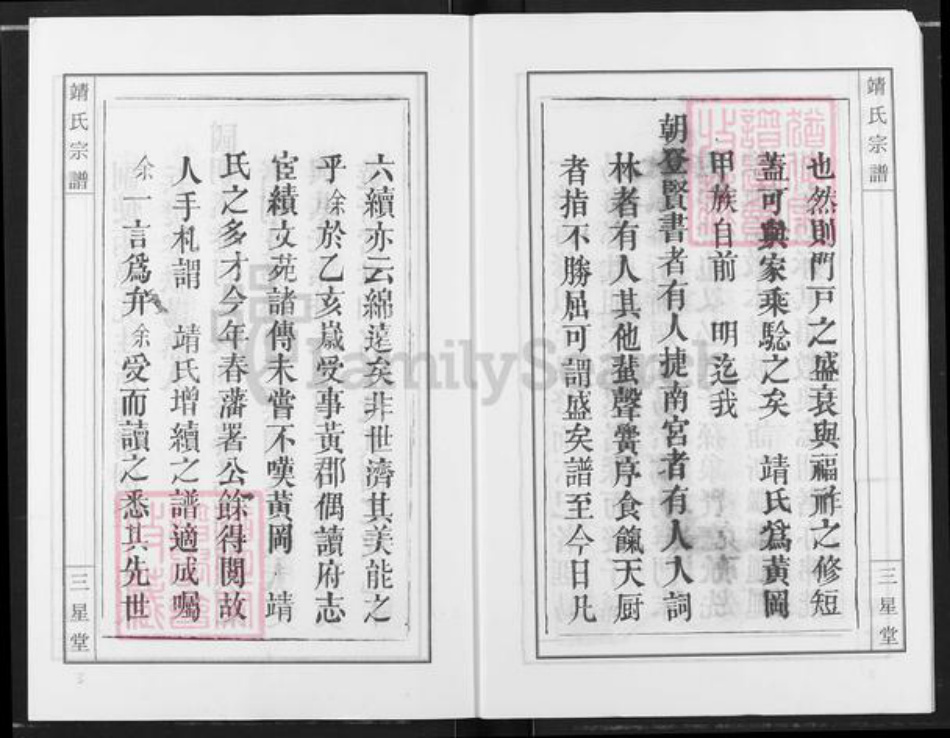 靖氏宗譜
三星堂
也然則門戸之盛衰與福祚之修短
蓋可與家乘騐之矣　靖氏爲黃岡
甲族自前　明迄我
朝登賢書者有人捷南宮者有人入詞
林者有人其他蜚聲黌序食餼天厨
者指不勝屈可謂盛矣譜至今日凡
六續亦云綿遠矣非世濟其美能之
乎余於乙亥歲受事黃郡偶讀府志
宦績文苑諸傳未嘗不嘆黃岡　靖
氏之多才今年春藩署公餘得閱故
人手札謂　靖氏增續之譜適成囑
余一言爲弁余受而讀之悉其先世
靖氏宗譜
三星堂
FamilySearch